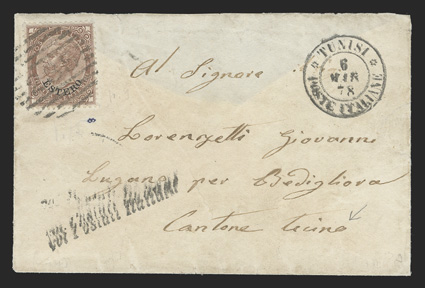 ESTERO
TUNISI
6
MAR
78
POSTE ITALIANE
Al Signore
Lorenzetti Giovanni
Lugano per Bedigliora
Cantone Ticino
Coi Postali Italiani